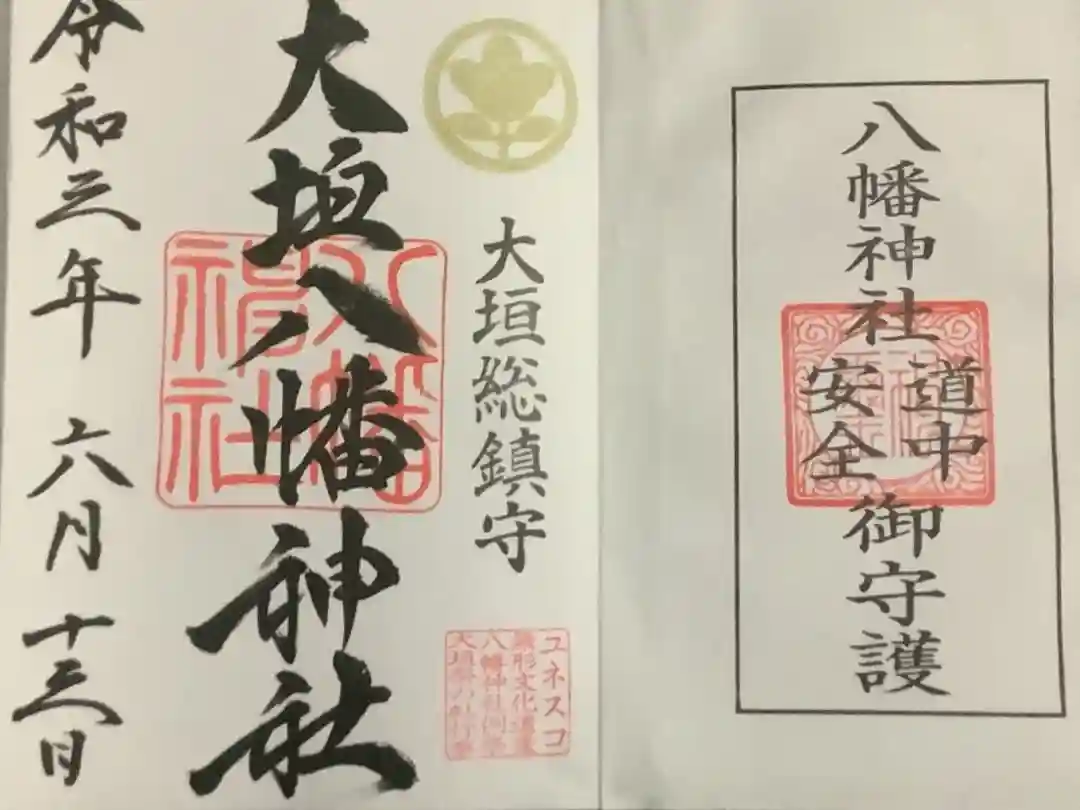 八幡神社
道中
安全
御守護
大垣総鎮守
ユネスコ
無形文化遺産
八幡神社例祭
大垣祭の軕行事
大垣八幡神社
八幡
神社
令和三年 六月 十三日